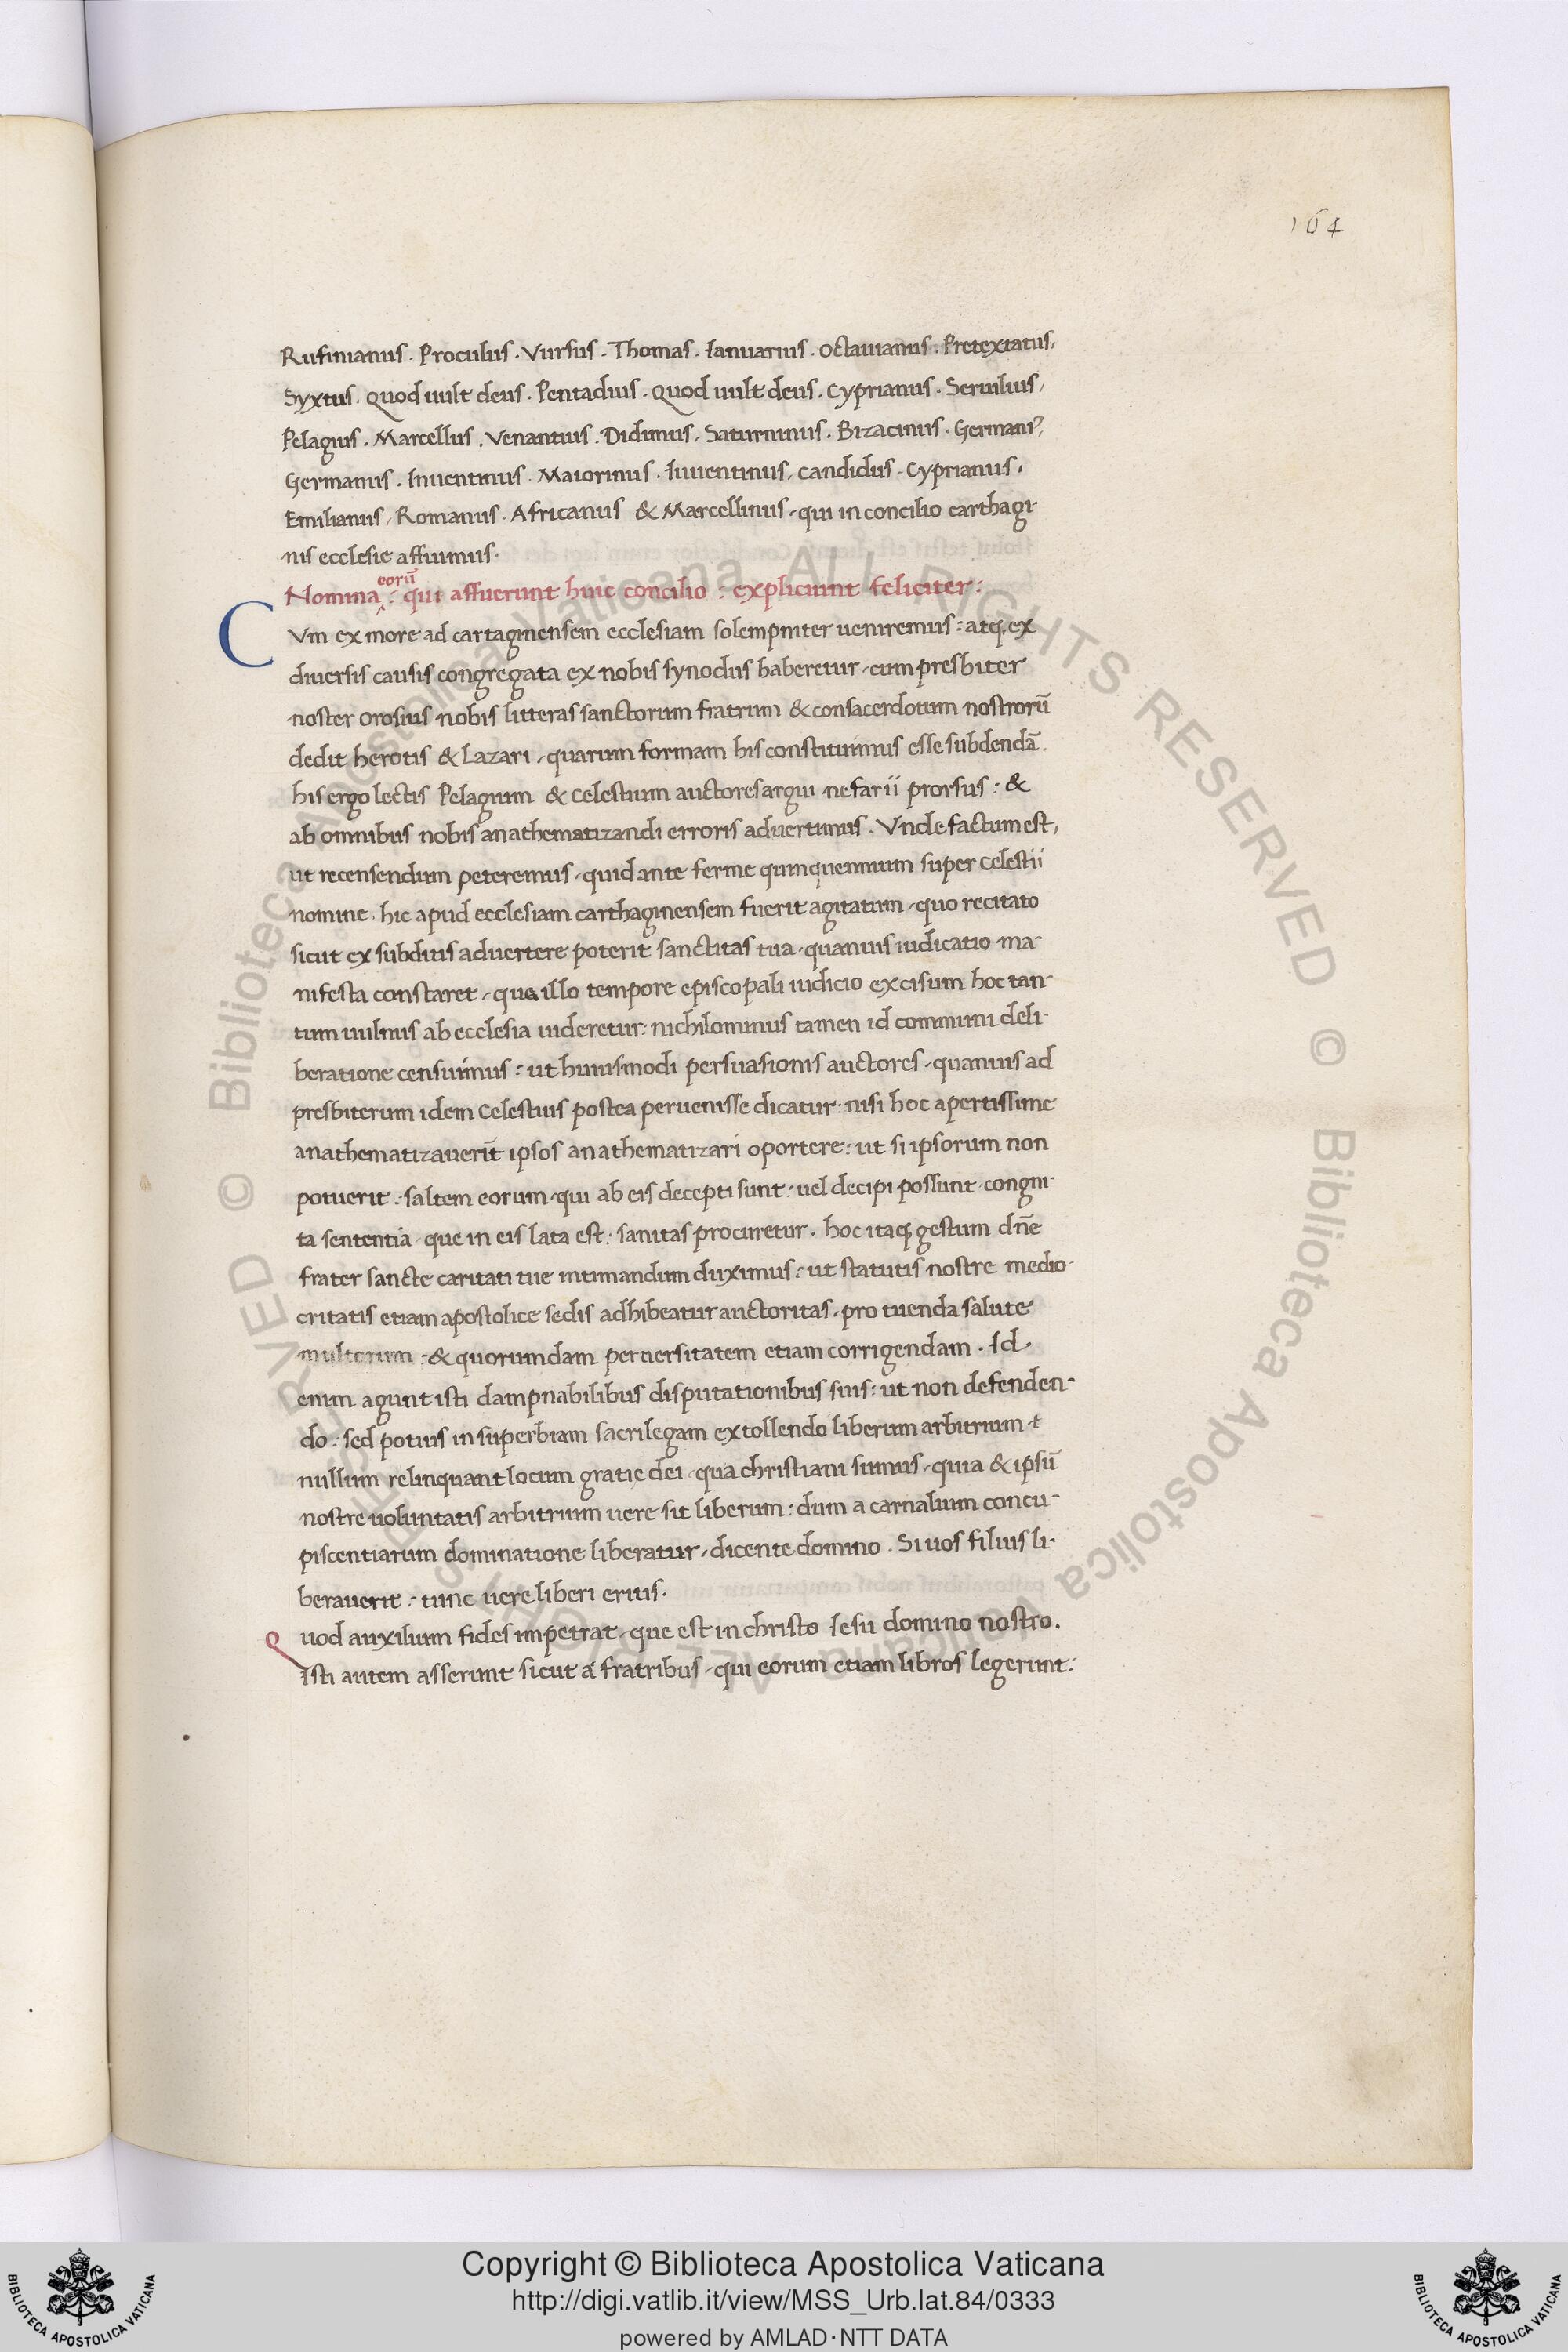 164
Rufinianus . Proculus . Vursus . Thomas . Ianuarius . Octauianus . Pretextatus,
Syxtus . Quod uult deus . Pentadius . Quod uult deus . Cyprianus . Seruilius,
Pelagius . Marcellus . Venantius . Didimus . Saturninus . Bizacinus . Germani⁹,
Germanus . Inuentinus . Maiorinus . Iuuentinus, Candidus . Cyprianus,
Emilianus, Romanus . Africanus & Marcellinus, qui in concilio carthagi
nis ecclesie affuimus.
Nomina eorū : qui affuerunt huic concilio : expliciunt feliciter :
C Vm ex more ad cartaginensem ecclesiam solempniter ueniremus : atq; ex
diuersis causis congregata ex nobis synodus haberetur, cum presbiter
noster Orosius nobis litteras sanctorum fratrum & consacerdotum nostrorū
dedit herotis & Lazari, quarum formam his constituimus esse subdendā.
his ergo lectis Pelagium & Celestium auctores argui nefarii prorsus : &
ab omnibus nobis anathematizandi erroris aduertimus . Vnde factum est,
ut recensendum peteremus, quid ante ferme quinquennium super Celestii
nomine, hic apud ecclesiam carthaginensem fuerit agitatum, quo recitato
sicut ex subditis aduertere poterit sanctitas tua, quanuis iudicatio ma-
nifesta constaret, qua illo tempore episcopali iudicio excisum hoc tan-
tum uulnus ab ecclesia uideretur : nichilominus tamen id communi deli-
beratione censuimus : ut huiusmodi persuasionis auctores, quanuis ad
presbiterum idem Celestius postea peruenisse dicatur : nisi hoc apertissime
anathematizauerīt ipsos anathematizari oportere : ut si ipsorum non
potuerit : saltem eorum, qui ab eis decepti sunt : uel decipi possunt, congni-
ta sententia, que in eis lata est : sanitas procuretur . hoc itaq; gestum dn̄e
frater sancte caritati tue intimandum duximus : ut statutis nostre medio-
critatis etiam apostolice sedis adhibeatur auctoritas, pro tuenda salute
multorum : & quorumdam peruersitatem etiam corrigendam . Id
enim agunt isti dampnabilibus disputationibus suis : ut non defenden-
do : sed potius in superbiam sacrilegam extollendo liberum arbitrium
nullum relinquant locum gratię dei, qua christiani sumus, quia & ipsū
nostre uoluntatis arbitrium uere sit liberum : dum a carnalium concu-
piscentiarum dominatione liberatur, dicente domino . Si uos filius li-
berauerit : tunc uere liberi eritis.
Quod auxilium fides impetrat, que est in christo Iesu domino nostro.
Isti autem asserunt sicut a fratribus, qui eorum etiam libros legerunt :
© Biblioteca Apostolica Vaticana ALL RIGHTS RESERVED © Biblioteca Apostolica Vaticana ALL RIGHTS RESERVED
Copyright © Biblioteca Apostolica Vaticana
http://digi.vatlib.it/view/MSS_Urb.lat.84/0333
powered by AMLAD·NTT DATA
BIBLIOTECA APOSTOLICA VATICANA
BIBLIOTECA APOSTOLICA VATICANA